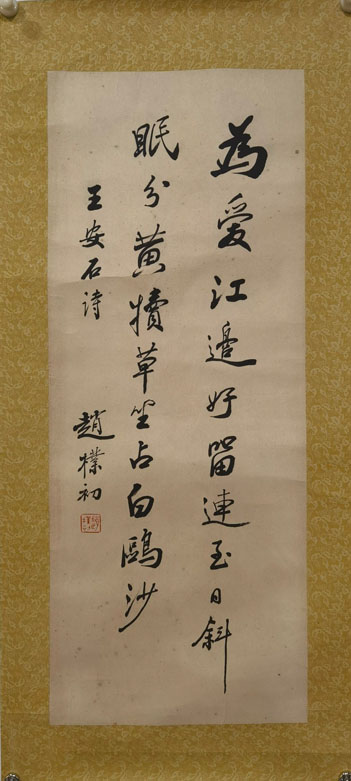 為愛江邊好留連至日斜
眠分黃犢草坐占白鷗沙
王安石诗
趙樸初